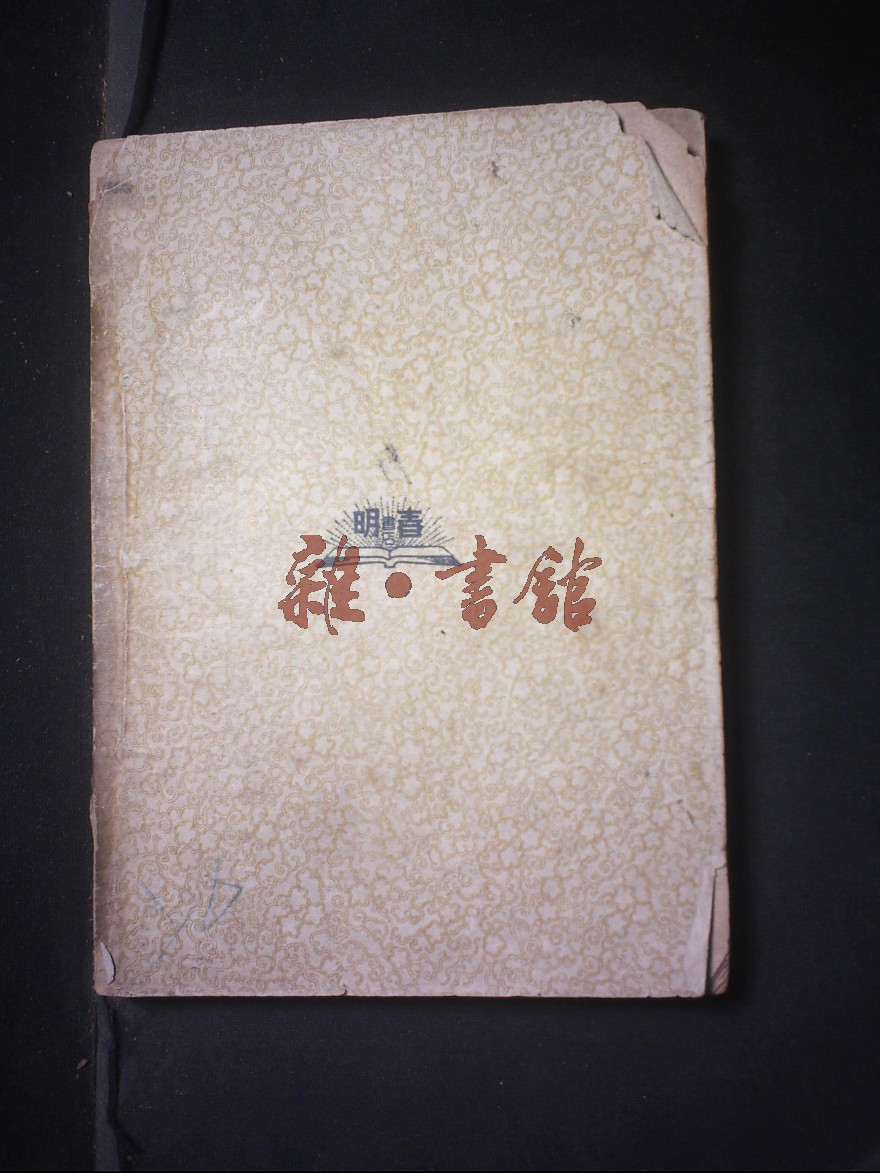 春明書店
雜·書館